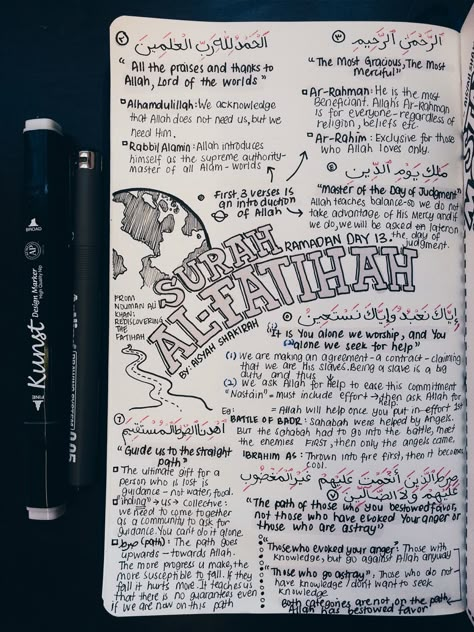 الحمد لله رب العلمين
"All the praises and thanks to
Allah, Lord of the worlds"
Alhamdulillah: We acknowledge
that Allah does not need us, but we
need Him.
Rabbil Alamin: Allah introduces
himself as the supreme authority-
master of all Alam - worlds
First 3 verses is
an introduction
of Allah
الرحمن الرحيم
"The Most Gracious, The Most
Merciful"
Ar-Rahman: He is the most
Beneficiant. Allah's Ar-Rahman
is for everyone - regardless of
religion, beliefs etc
Ar-Rahim: Exclusive for those
who Allah loves only.
ملك يوم الدين
"Master of the Day of Judgment"
Allah teaches balance - so we do not
take advantage of His Mercy and if
we do, we will be asked on later on
the day of
judgment.
RAMADAN DAY 13.
SURAH
AL-FATIHAH
BY: AISYAH SHAKIRAH
FROM
NOUMAN ALI
KHAN:
REDISCOVERING
THE
FATIHAH
إياك نعبد وإياك نستعين
(1) It is You alone we worship, and You
(2) alone we seek for help"
(1) We are making an agreement - a contract - claiming
that we are His slaves. Being a slave is a big
duty and thus
(2) We ask Allah for Help to ease this commitment
"Nastain" = must include effort → then ask Allah for
help.
Eg: = Allah will help once you put in effort 1st
BATTLE OF BADR: Sahabah were helped by Angels.
But the sahabah had to go into the battle, meet
the enemies FIRST, then only the angels came.
IBRAHIM AS: Thrown into fire first, then it became
cool.
اهدنا الصرط المستقيم
"Guide us to the straight
path"
The ultimate gift for a
person who is lost is
guidance - not water, food.
"us" → Collective:
we need to come together
as a community to ask for
guidance. You can't do it alone
(path): The path goes
upwards - towards Allah.
The more progress u make, the
more susceptible to fall. If they
fall it hurts more. It teaches us
that there is no guarantees even
if we are now on this path
صرط الذين أنعمت عليهم غير المغضوب
عليهم ولا الضالين
"The path of those whom you bestowed favor,
not those who have evoked Your anger or
those who are astray"
"Those who evoked your anger": Those with
knowledge, but go against Allah anyway
"Those who go astray": Those who do not
have knowledge / don't want to seek
knowledge
Both categories are not on the path
Allah has bestowed favor
BROAD
Kunst
Design Marker
FINE
0.05